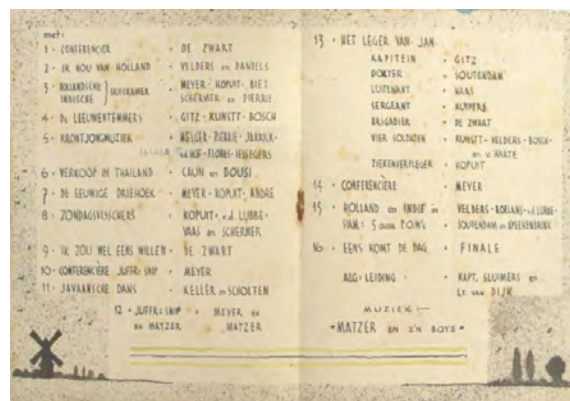 met:
1 · CONFERENCIER · DE ZWART
2 · IK HOU VAN HOLLAND · VELDERS en DANIELS
3 · HOLLANDSCHE INDISCHE } HUISKAMER · MEYER · KOPUIT · BIET
SCHERMER en PIERRIE
4 · DE LEEUWENTEMMERS · GITZ · KUNSTT · BOSCH
5 · KRONTJONGMUZIEK · MELGER · PIERRIE · JARRICK ·
v.d. HOF · FLORES · TESSEGERS
6 · VERKOOP IN THAILAND · CAUN en DOUSI
7 · DE EEUWIGE DRIEHOEK · MEYER · KOPUIT · ANDRE
8 · ZONDAGSVISSCHERS · KOPUIT · v.d. LUBBE ·
VAAS en SCHERMER
9 · IK ZOU WEL EENS WILLEN · DE ZWART
10 · CONFERENCIÈRE JUFFR: SNIP · MEYER
11 · JAVAANSCHE DANS · KELLER en SCHOLTEN
12 · JUFFR: SNIP · MEYER en
en MATZER MATZER
13 · HET LEGER VAN JAN
KAPITEIN · GITZ
DOKTER · SOUTENDAM
LUITENANT · VAAS
SERGEANT · KUYPERS
BRIGADIER · DE ZWART
VIER SOLDATEN · KUNSTT · VELDERS · BOSCH ·
en v. HARTE
ZIEKENVERPLEGER · KOPUIT
14 · CONFERENCIÈRE · MEYER
15 · HOLLAND en INDIË in · VELDERS · ROELANS · v.d. LUBBE ·
SIAM: 5 oude P.O.W's SOUTENDAM en SPEEKENBRINK
16 · EENS KOMT DE DAG · FINALE
ALG: LEIDING · KAPT. SLUIMERS en
LT. van DIJK
MUZIEK:—
"MATZER EN Z'N BOYS"